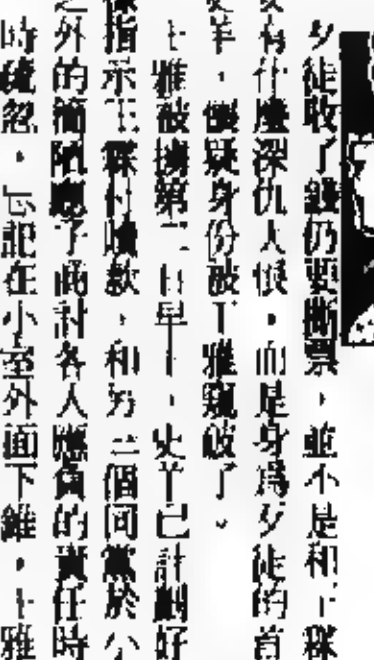 歹徒收了錢仍要撕票，並不是和丁霖
有什麼深仇大恨，而是身爲歹徒的首
羊，懷疑身份被丁雅窺破了。
丁雅被擄第二日早上，史羊已計劃好
指示丁霖付贖款，和另三個同黨於公
外的簡陋廳子商討各人應負的責任時
時疏忽，忘記在小室外面下鎖，丁雅